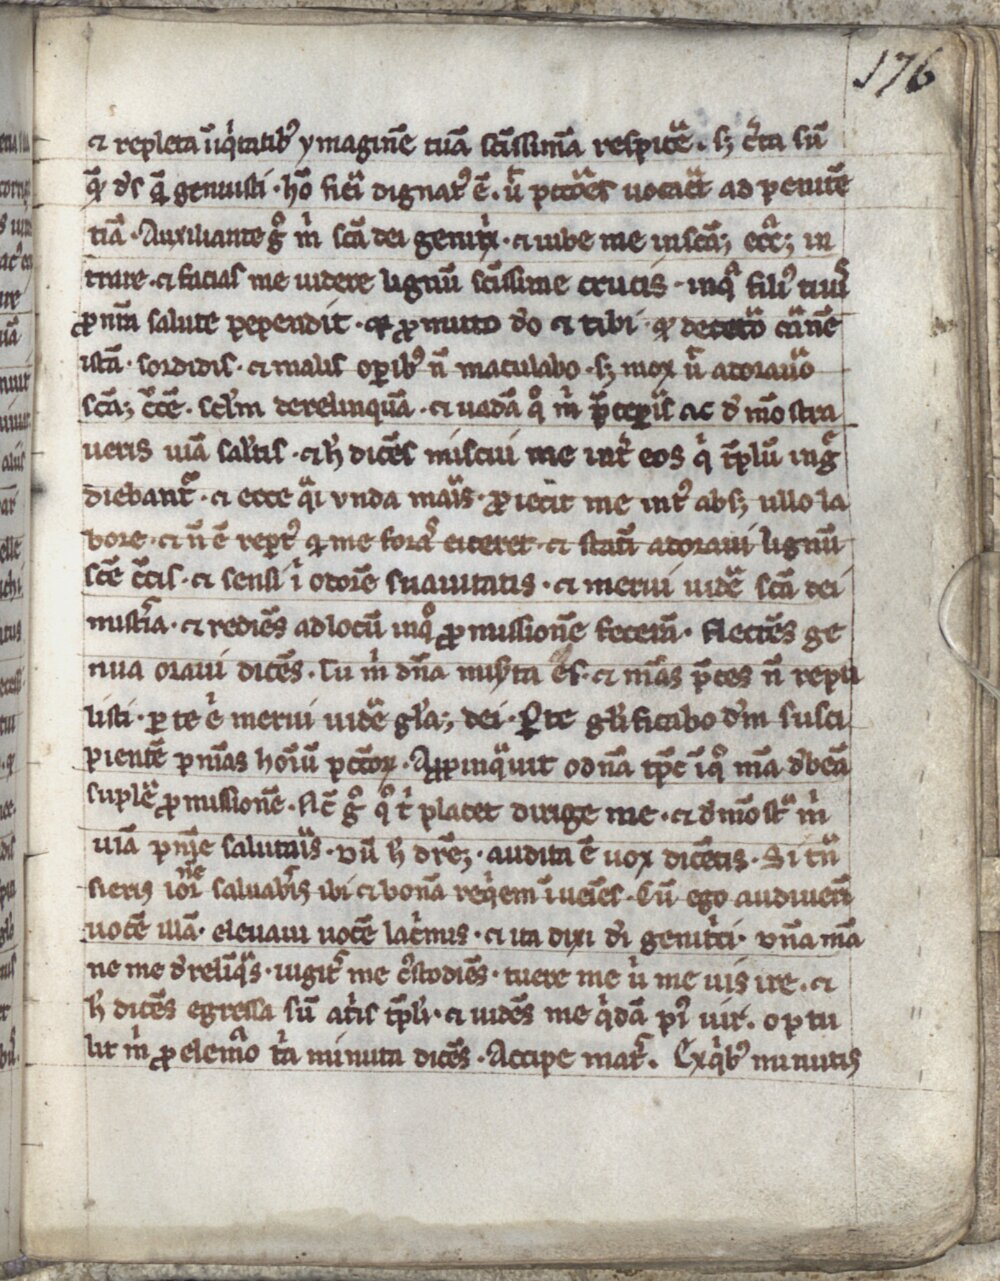 176
⁊ repleta iiq̇tatib᷒ ymaginē tuā sc̄issimā respicẽ . sꝫ c̃ta sū
q̃ ds̄ q̄ genuisti · hō fiẽi dignat᷒ ē . ů pcc̄õẽs uocaẽt ad penitē
tiā · Auxiliante g̊ m̊ sc̄a dei genitˣ · ⁊ iube me in sc̄aꝫ ecc̄eꝫ in
trare · ⁊ facias me uidere lignū sc̄issime crucis · in q̊ fili᷒ tuus
ꝓ nr̄a salute pependit · ꝙ ꝓmitto d̄o ⁊ tibi · ꝙ de cetõ carnē
istā · sordidis · ⁊ malis oꝑib᷒ n̄ maculabo · sꝫ mox ů adorauõ
sc̄aꝫ c̃cē · sclm̄ derelinquā · ⁊ uadā q̊ m̊ p̄cepĩs ac d̄mōstra
ueris uiā salr̄tis · ⁊ h̄ dicēs miscui me int̃ eos q̇ tp̄lū ing̃
diebant᷒ · ⁊ ecce q̃i vnda maĩs · ꝓiecit me int᷒ absꝫ ullo la
bore · ⁊ n̄ ē rep̃t᷒ q̇ me forã eiceret · ⁊ statī adoraui lignū
sc̄e c̃cis · ⁊ sensi i̊ odorē suauitatis · ⁊ merui uidẽ sc̄a dei
mist̃ia · ⁊ rediēs ad locū in q̊ ꝓmissionē fecerā · flectēs ge
nua oraui dicēs · Tu m̊ dn̄a nuṡta es̄ · ⁊ mēas p̄ces n̄ repu
listi · per te ẽ merui uidẽ gl̄aꝫ dei · Per te gl̄ificabo dm̄ susci
pientē pn̄ias hoiū pcc̄oꝝ · Appinq̃uit o dn̄a tp̄c i q̊ mēa d̄beā
suplẽ ꝓmissionē · Nc̄ g̊ q̊ t̊ placet dirige me · ⁊ d̄mōst̃ m̊
uiā pn̄ie salutaĩs · Dū h̄ dr̄eꝫ · audita ē uox dicētis · Si tñ
sieris iordanē saluab̃is ibi ⁊ bonā req̇em īueīes · Cū ego audiuerā
uocē illā · eleuaui uocē lac̃mis · ⁊ ita dixi di̊ genit̊ci · Dn̄a mēa
ne me d̄relĩq̃s · iugit̃ me c᷒stodiēs · tuere me ů me uis ire · ⁊
h̄ dicēs egressa sū at̊is tp̄li · ⁊ uidēs me q̇dā pi᷒ uir · optu
lit m̊ ꝓ elemōa tr̄a minuta dicēs · Accipe mat̃ · Ex q̇b᷒ minutis